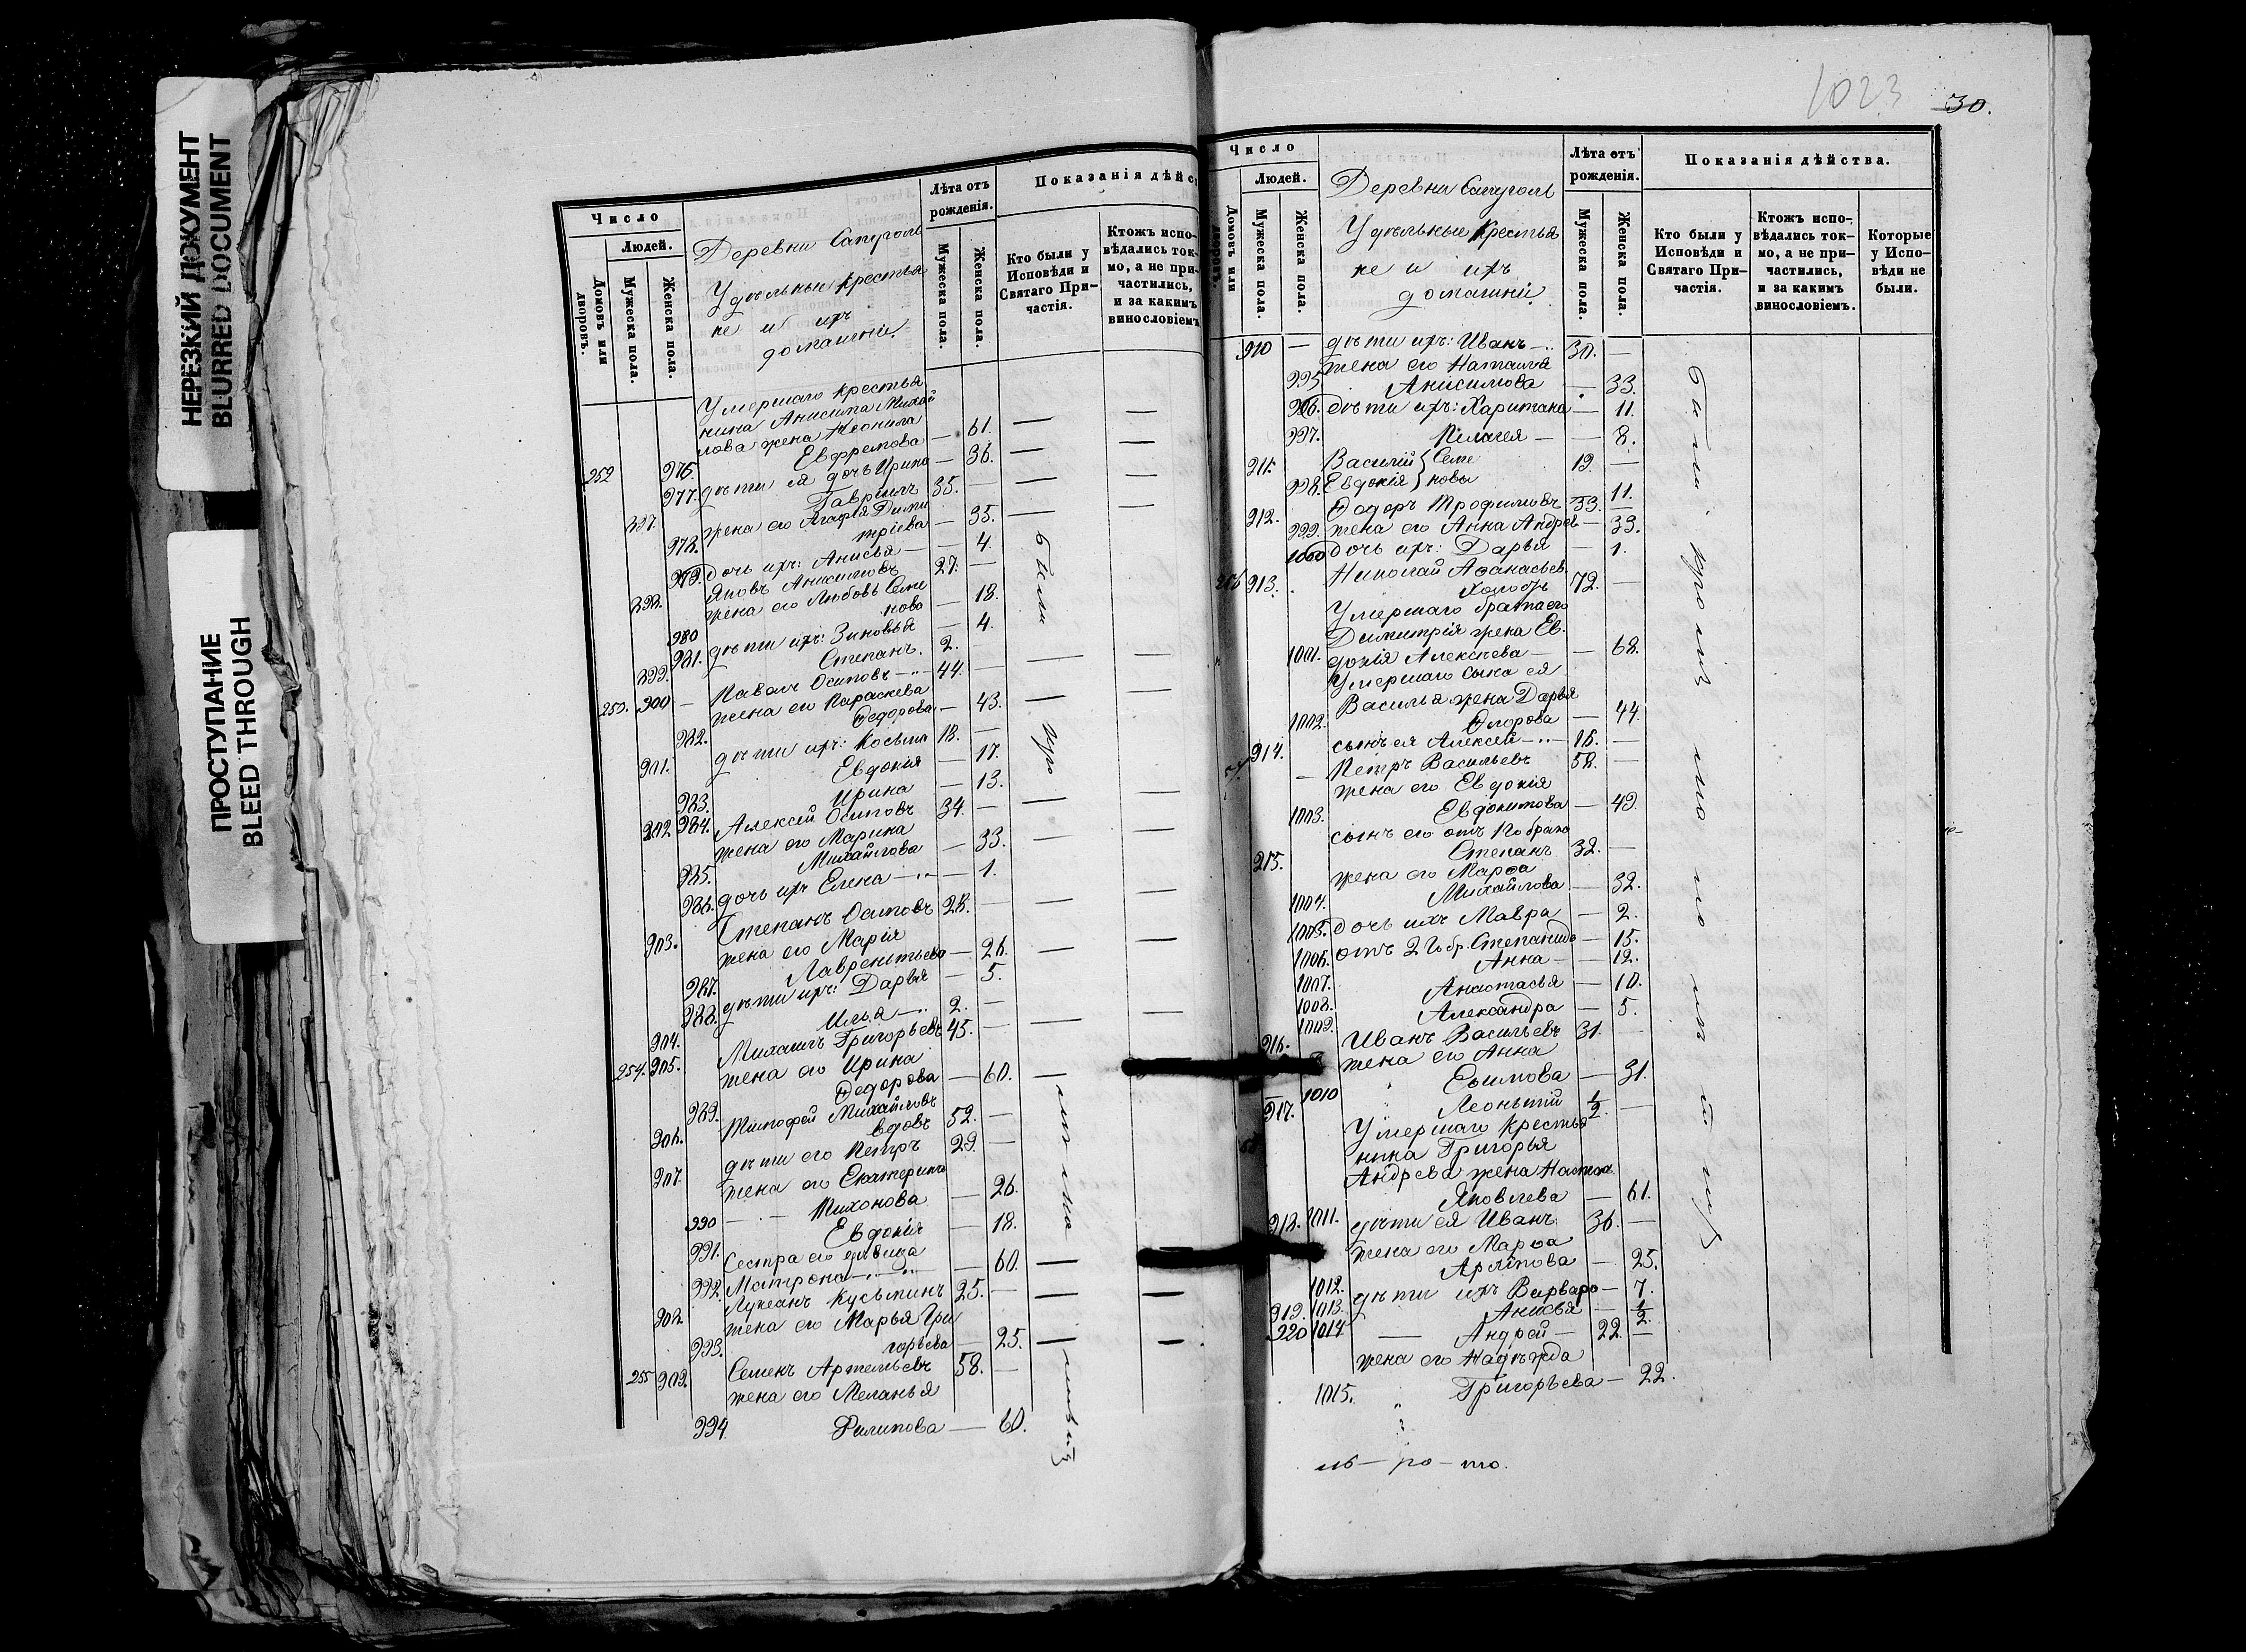 НЕРЕЗКИЙ ДОКУМЕНТ
BLURRED DOCUMENT
ПРОСТУПАНИЕ
BLEED THROUGH
Число
Людей.
Домовъ или дворовъ.
Мужеска пола.
Женска пола.
Деревни
Удѣльные крестья
не и ихъ
домашніе.
Лѣта отъ
рожденія.
Мужеска пола.
Женска пола.
Показанія дѣйс
Кто были у
Исповѣди и
Святаго При-
частія.
Ктожъ испо-
вѣдались ток-
мо, а не при-
частились,
и за какимъ
винословіемъ
Умершаго крестья
нина Анисима Михай
лова жена Неонила
252 976. Евфремова — 61.
977. дѣти ея дочь Ирина — 36.
897. Гавріилъ 35. —
жена его Агафія Дими
978. тріева — 35.
979. дочь ихъ: Анисья — 4.
898. Яковъ Анисимовъ 27. —
жена его Любовь Семе
980 нова — 18.
981. дѣти ихъ: Зиновья — 4.
899. Степанъ. 2. —
253. 900 — Павелъ Осиповъ 44. —
жена его Параскева
982. Ѳедорова — 43.
901. дѣти ихъ: Косьма 18. —
983. Евдокія — 17.
984. Ирина — 13.
902 Алексѣй Осиповъ 34. —
жена его Марина
985. Михайлова — 33.
986. дочь ихъ Елена — 1.
903. Степанъ Осиповъ 28. —
жена его Марія
987. Лаврентьева — 26.
988. дѣти ихъ: Дарья — 5.
904. Илья 2. —
254. 905. Михаилъ Григорьевъ 45. —
жена его Ирина
989. Ѳедорова — 60.
906. Тимофей Михайловъ
вдовъ 52. —
907. дѣти его Петръ 29. —
жена его Екатерина
990 Тихонова — 26.
991. Евдокія — 18.
Сестра его дѣвица
992. Матрона — 60.
908. Лукеанъ Кусьминъ 25. —
жена его Марья Гри
993. горьева — 25.
255 909. Семенъ Артемьевъ 58. —
жена его Меланья
994. Филипова — 60.
были
1023
30.
Число
Людей.
Домовъ или дворовъ.
Мужеска пола.
Женска пола.
Деревни
Удѣльные крестья
не и ихъ
домашніе.
Лѣта отъ
рожденія.
Мужеска пола.
Женска пола.
Показанія дѣйства.
Кто были у
Исповѣди и
Святаго При-
частія.
Ктожъ испо-
вѣдались ток-
мо, а не при-
частились,
и за какимъ
винословіемъ.
Которые
у Испо-
вѣди не
были.
910 — дѣти ихъ: Иванъ 30. —
жена его Наталья
995 Анисимова — 33.
996. дѣти ихъ: Харитина — 11.
997. Пелагея — 8.
911. Василій } Семе 19. —
998. Евдокія } новы 11.
912. Ѳедоръ Трофимовъ 33. —
999. жена его Анна Андрев — 33.
1000 дочь ихъ: Дарья — 1.
256 913. Николай Аѳанасьев.
72. —
Умершаго брата его
Димитрія жена Ев.
1001. докія Алексѣева — 68.
Умершаго сына ея
Василья жена Дарья
1002. — 44.
914. сынъ ея Алексѣй 16. —
Петръ Васильевъ 58. —
жена его Евдокія
1003. Евдокимова — 49.
сынъ его отъ 1го брака
915. Степанъ 32. —
жена его Марѳа
1004. Михайлова — 32.
1005. дочь ихъ Мавра — 2.
1006. отъ 2го бр. Степанида — 15.
1007. Анна — 12.
1008. Анастасья — 10.
1009. Александра — 5.
916. Иванъ Васильевъ 31. —
жена его Анна
1010 Ефимова — 31.
917. Леонтій 1/2. —
Умершаго крестья
нина Григорья
Андреева жена
1011. Яковлева — 61.
918. дѣти ея Иванъ 36. —
жена его Марѳа
1012. Архипова — 25.
1013. дѣти ихъ Варвара — 7.
1014 Анисья — 1/2.
919. 920 Андрей — 22. —
жена его Надѣжда
1015. Григорьева — 22.
были кромѣ